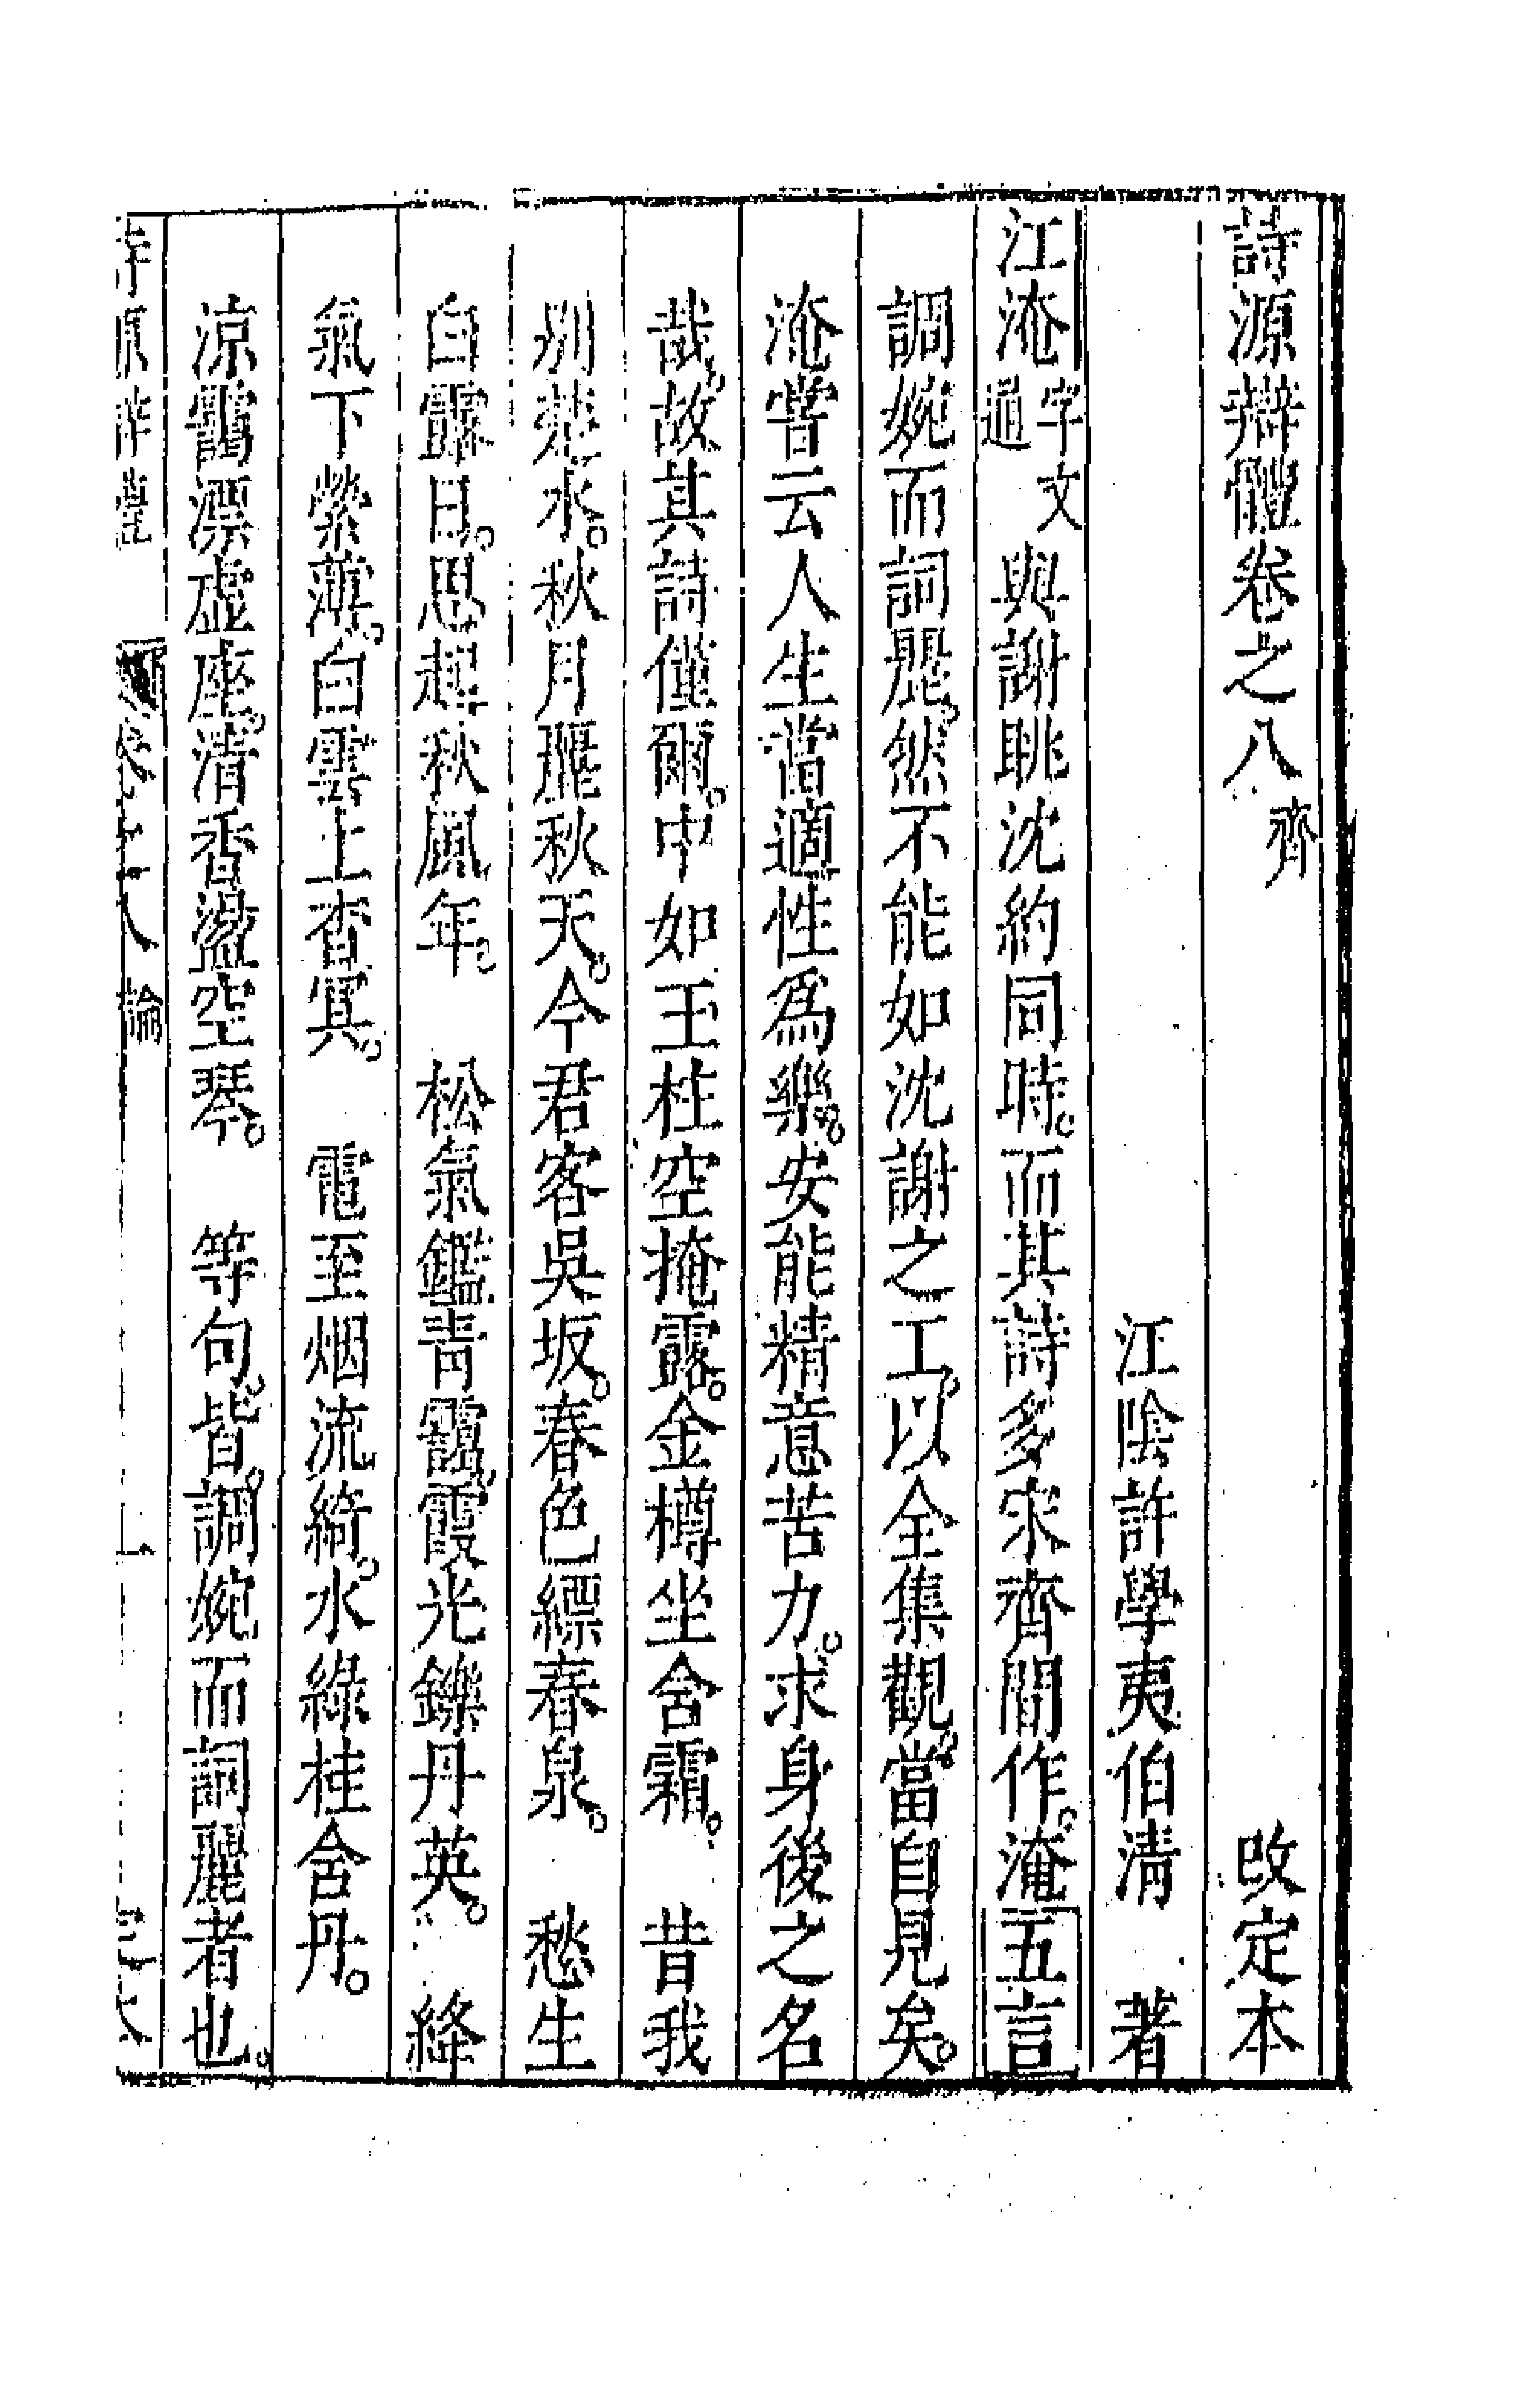 詩源辯體卷之八 齊 改定本
江陰許學夷伯清 著
江淹字文通 與謝朓沈約同時。而其詩多宋齊間作。淹五言
調婉而詞麗。然不能如沈謝之工。以全集觀。當自見矣。
淹嘗云人生當適性爲樂。安能精意苦力。求身後之名
哉。故其詩僅爾。中如玉柱空掩露。金樽坐含霜。 昔我
別楚水。秋月麗秋天。今君客吳坂。春色縹春泉。 愁生
白露日。思起秋風年。 松氣鑑青靄。霞光鑠丹英。 絳
氣下縈薄。白雲上杳冥。 電至烟流綺。水綠桂含丹。
涼靄漂虛座。清香盪空琴。 等句。皆調婉而詞麗者也。
詩源辯體 卷之八 論